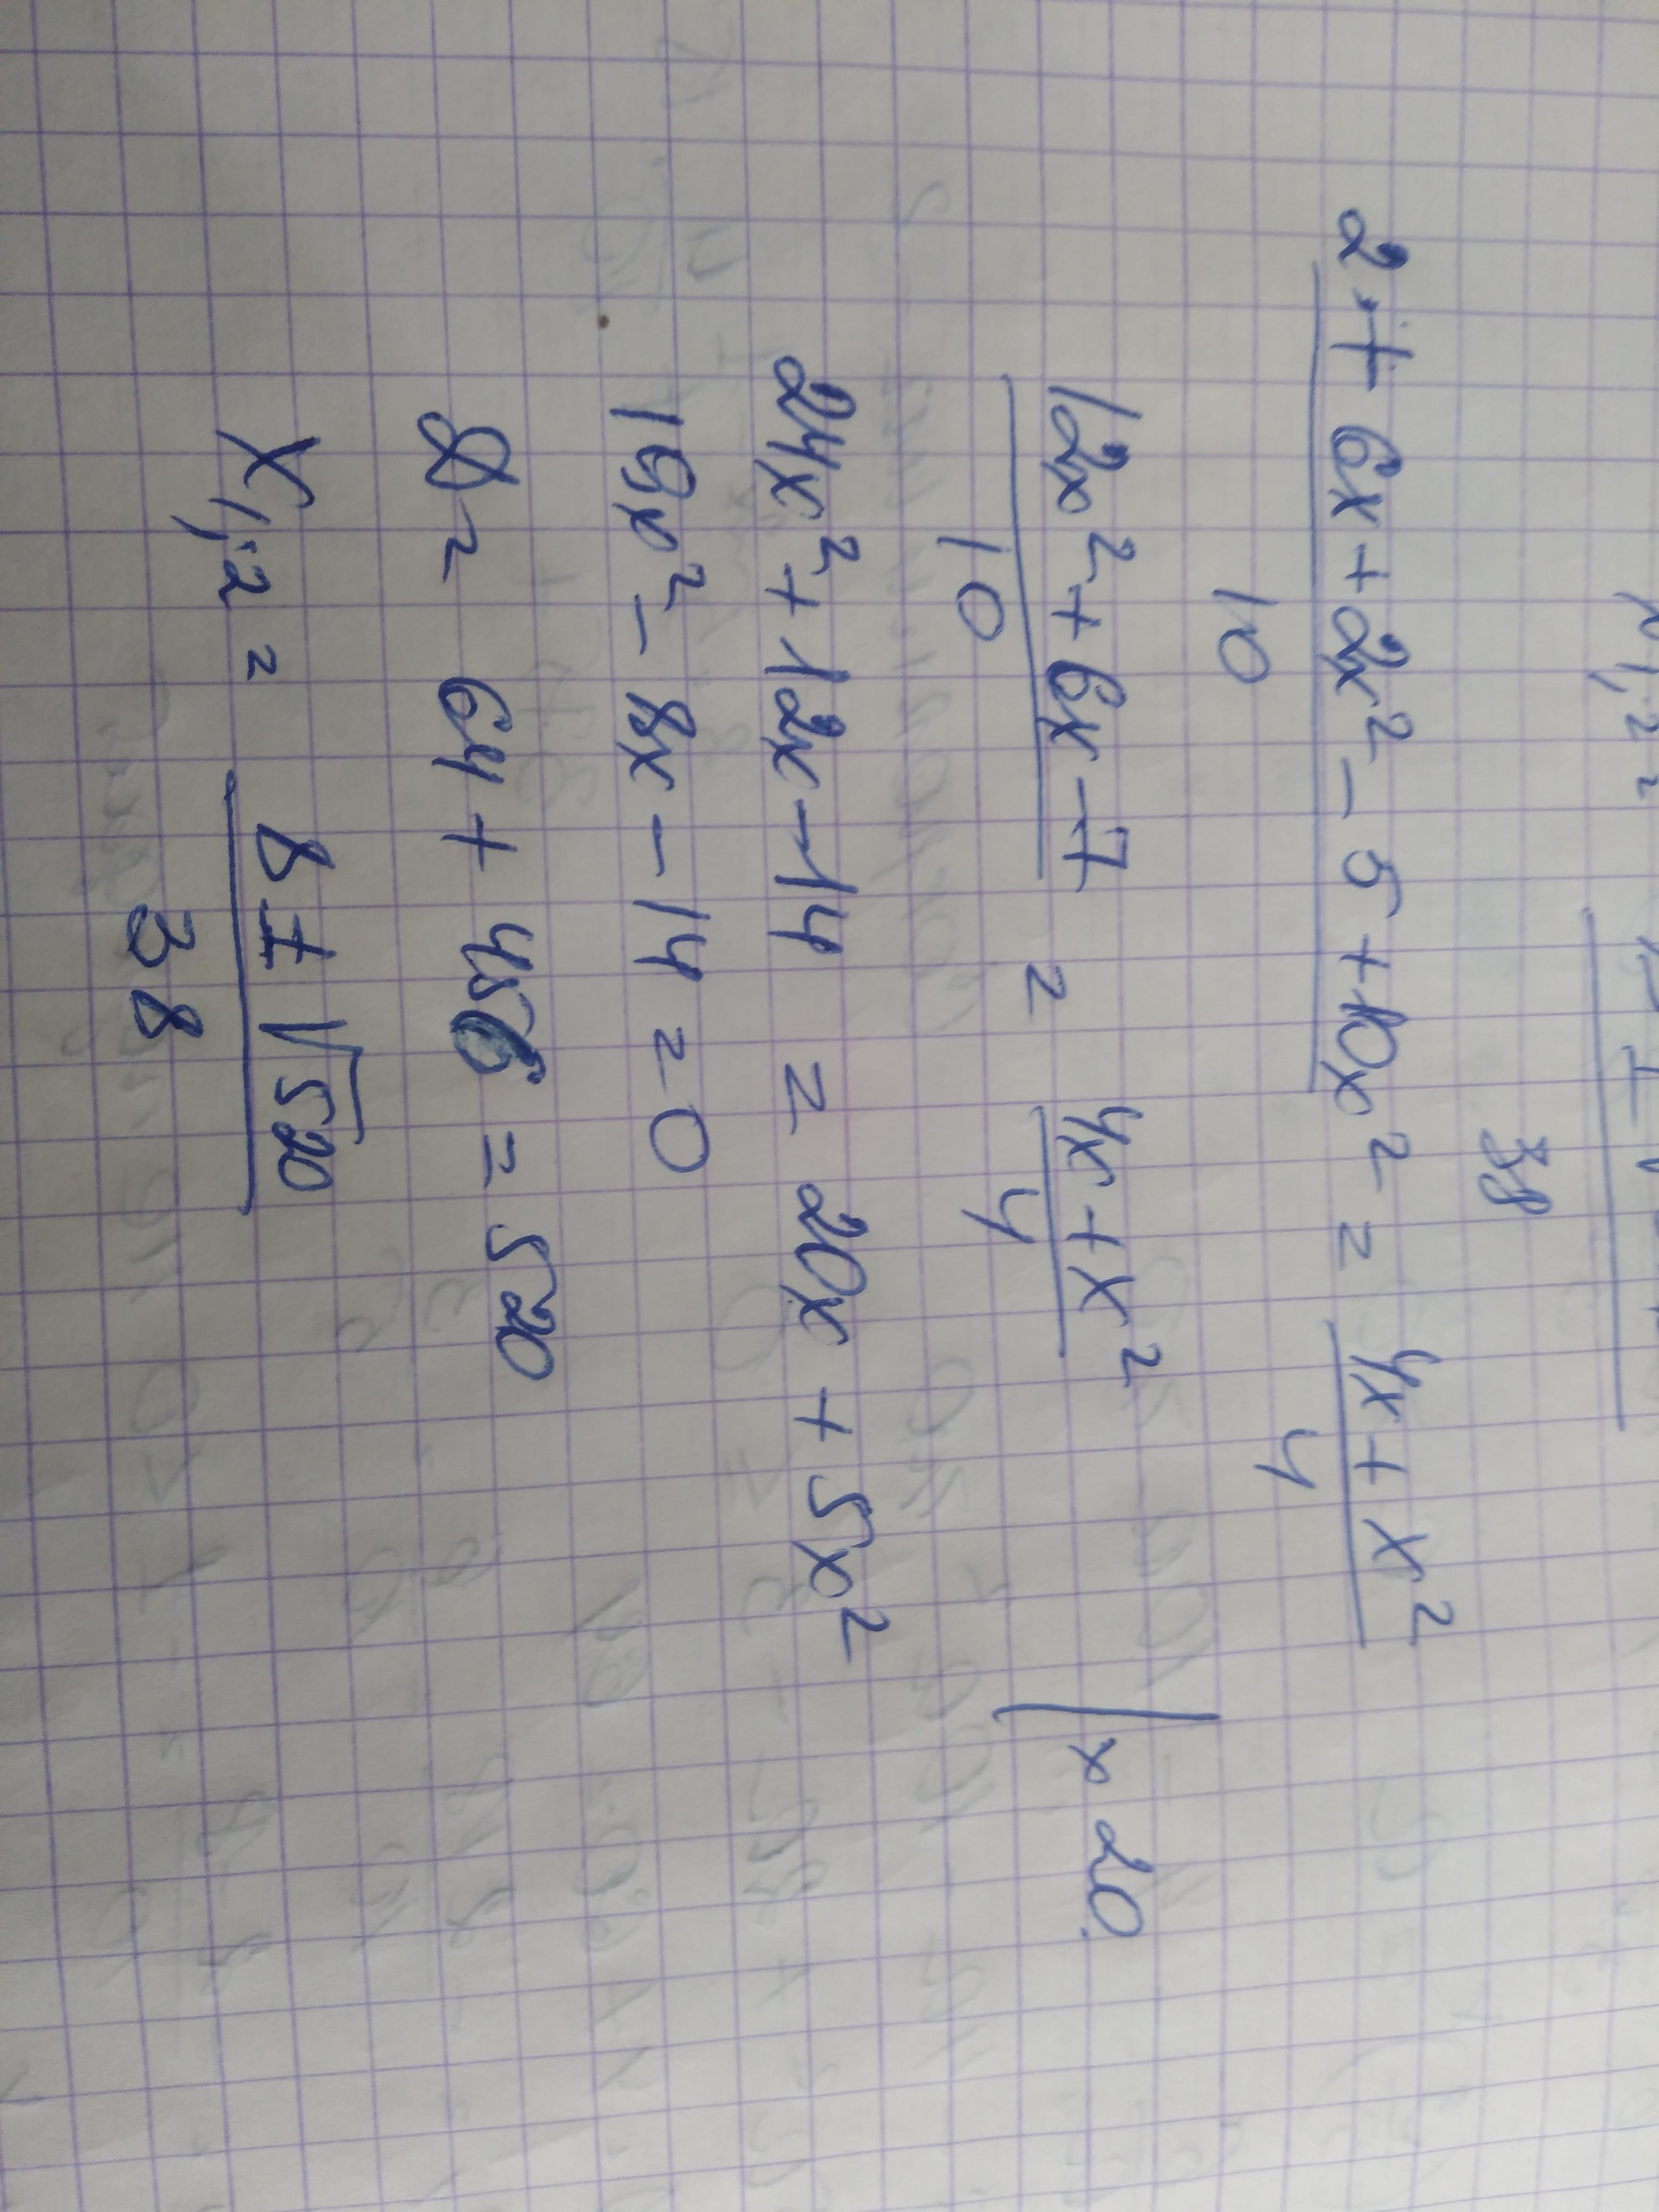 x₁,₂ =
38
2 + 6x + 2x² - 5 + 10x² = 4x + x²
10 4
12x² + 6x - 7 = 4x + x² | x 20
10 4
24x² + 12x - 14 = 20x + 5x²
19x² - 8x - 14 = 0
D = 64 + 456 = 520
x₁,₂ = 8 ± √520
38